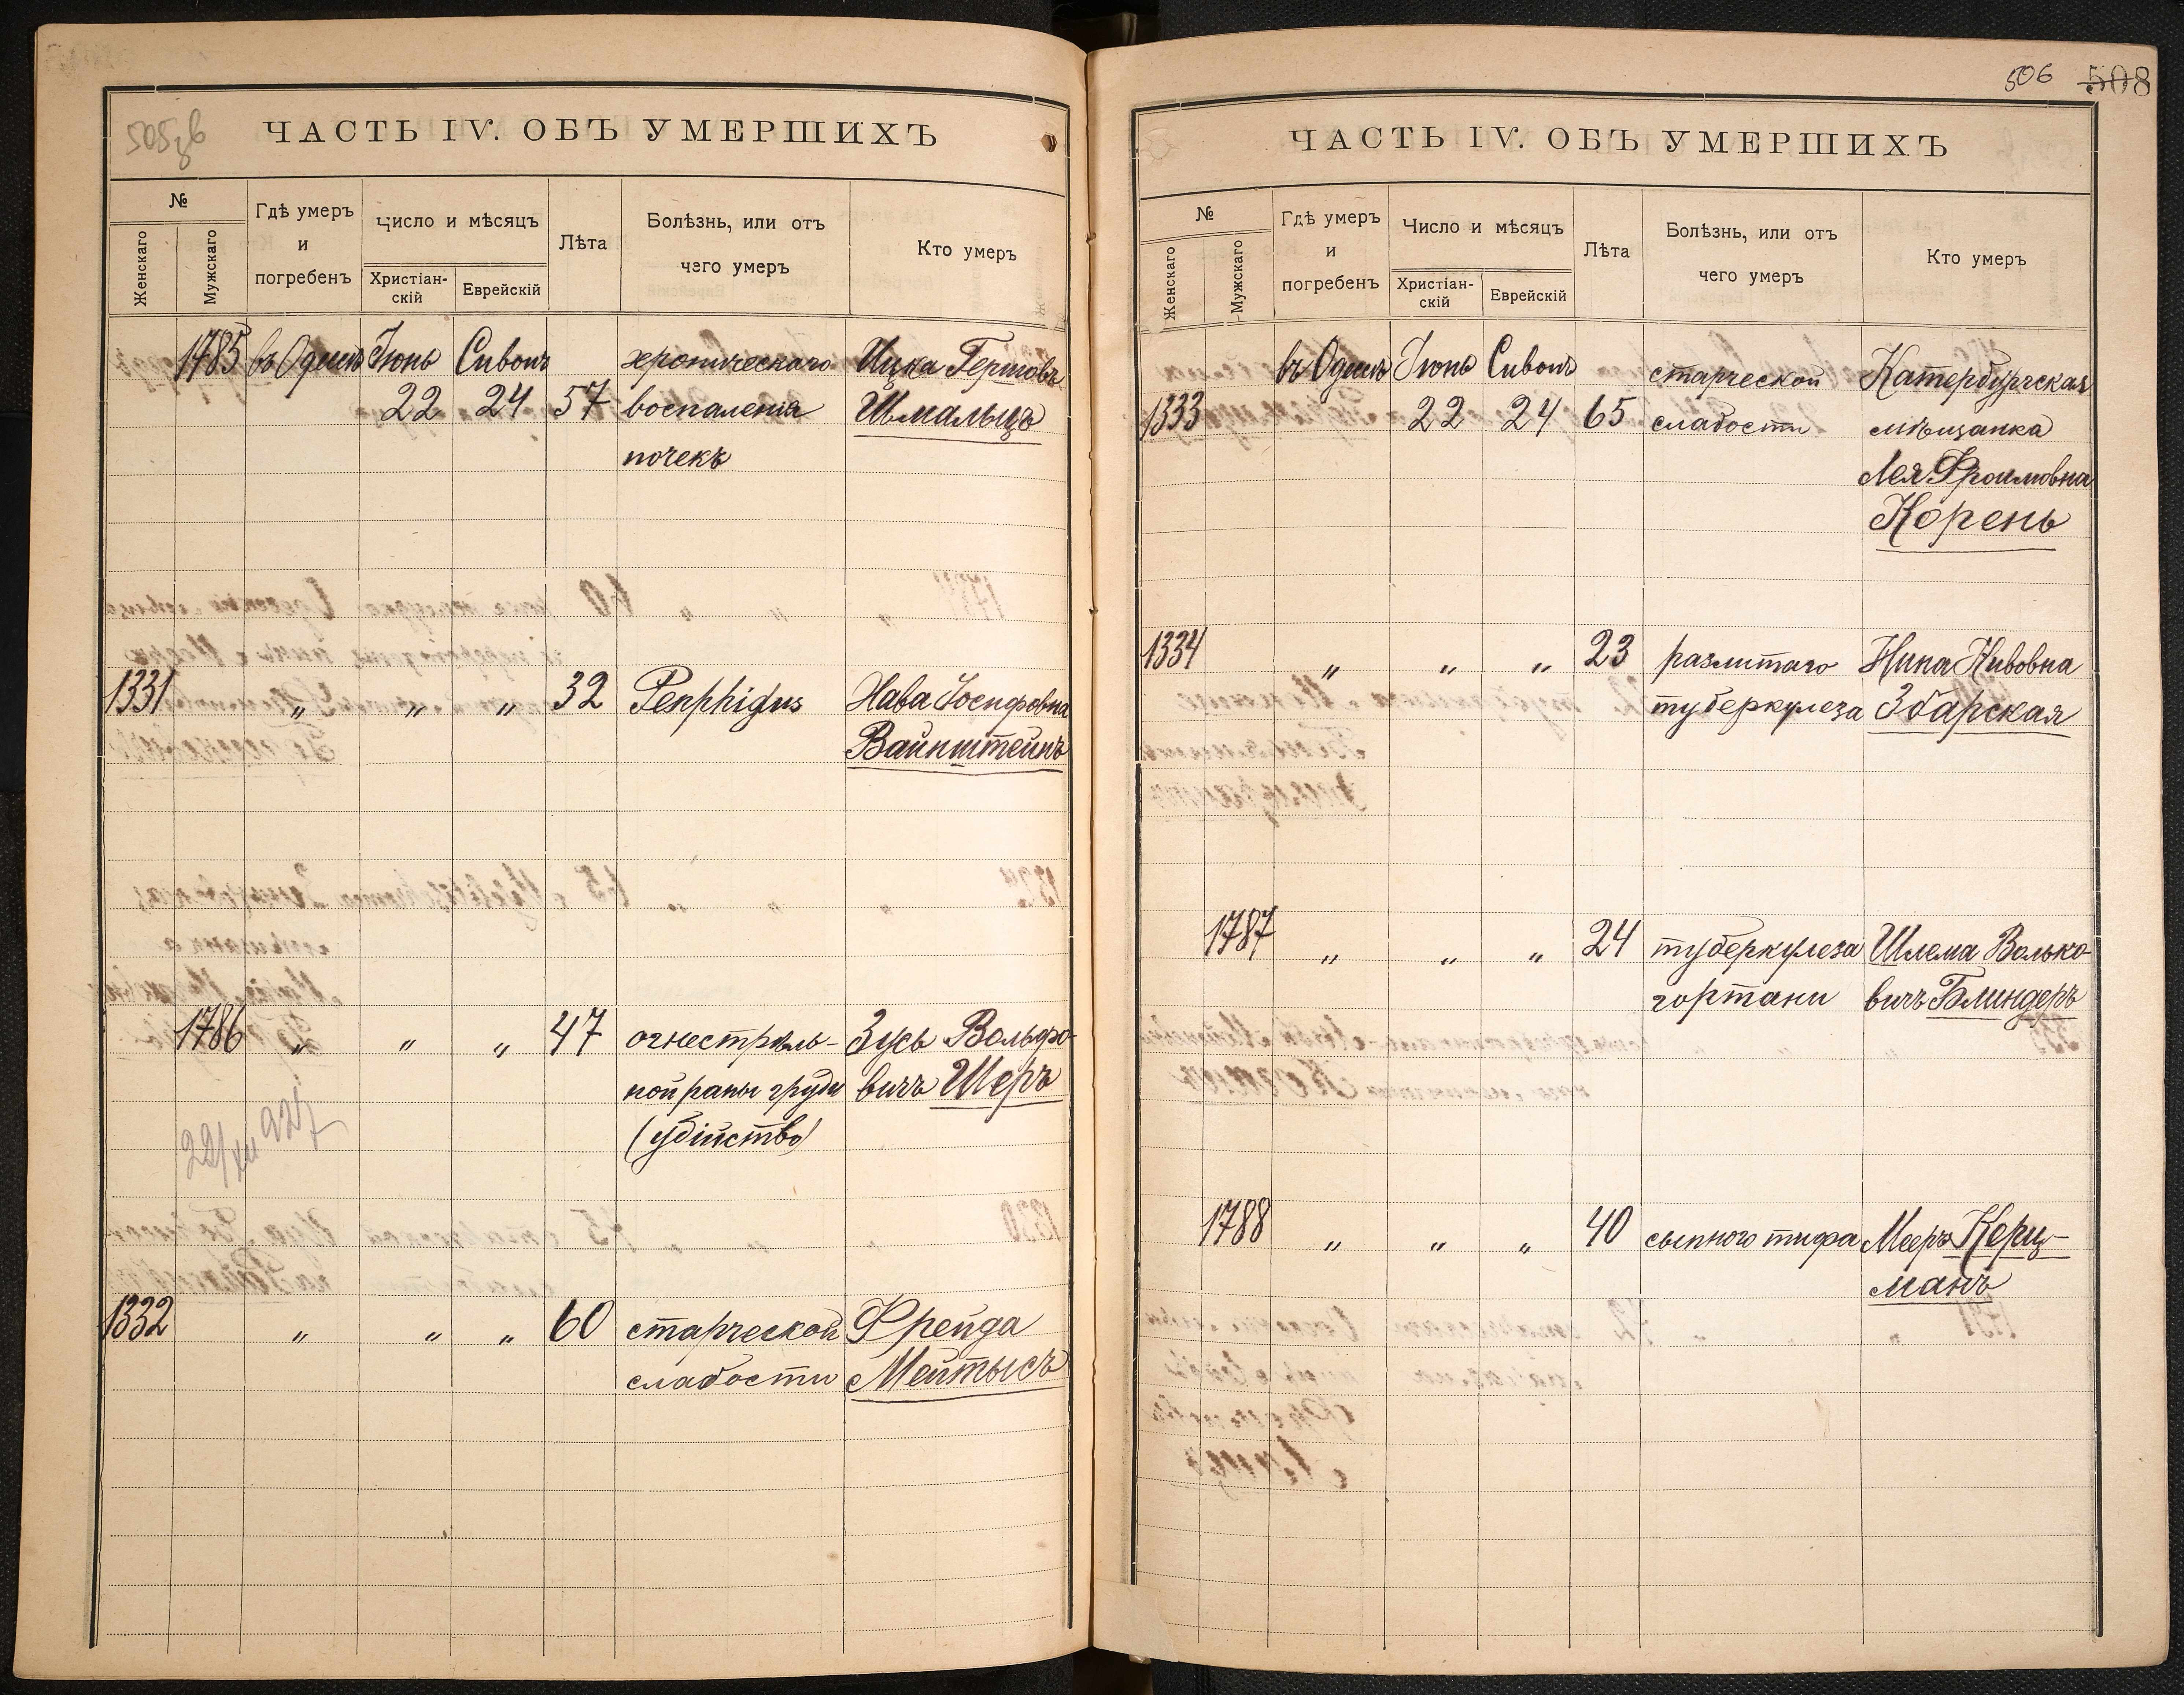 505зв
ЧАСТЬ IV. ОБЪ УМЕРШИХЪ
№
Женскаго
Мужскаго
Гдѣ умеръ
и
погребенъ
Число и мѣсяцъ
Христіан-
скій
Еврейскій
Лѣта
Болѣзнь, или отъ
чего умеръ
Кто умеръ
1785 въ Одессѣ Іюнь Сивонъ хроническаго Ицка Гершовъ
22 24 57 воспаленія Шмальцъ
почекъ
1331 „ „ „ 32 Penphigus Хава Іосифовна
Вайнштейнъ
1786 „ „ „ 47 огнестрѣль- Зусь Вольфо-
ной раны груди вичъ Шеръ
(убійство)
22/XII 927
1332 „ „ „ 60 старческой Фрейда
слабости Мейтысъ
506 508
ЧАСТЬ IV. ОБЪ УМЕРШИХЪ
№
Женскаго
Мужскаго
Гдѣ умеръ
и
погребенъ
Число и мѣсяцъ
Христіан-
скій
Еврейскій
Лѣта
Болѣзнь, или отъ
чего умеръ
Кто умеръ
въ Одессѣ Іюнь Сивонъ старческой Катербургская
1333 22 24 65 слабости мѣщанка
Лея Фроимовна
Корень
1334 „ „ „ 23 разлитаго Нина Нивовна
туберкулеза Збарская
1787 „ „ „ 24 туберкулеза Шлема Волько
гортани вичъ Блиндеръ
1788 „ „ „ 40 сыпного тифа Мееръ Керц-
манъ